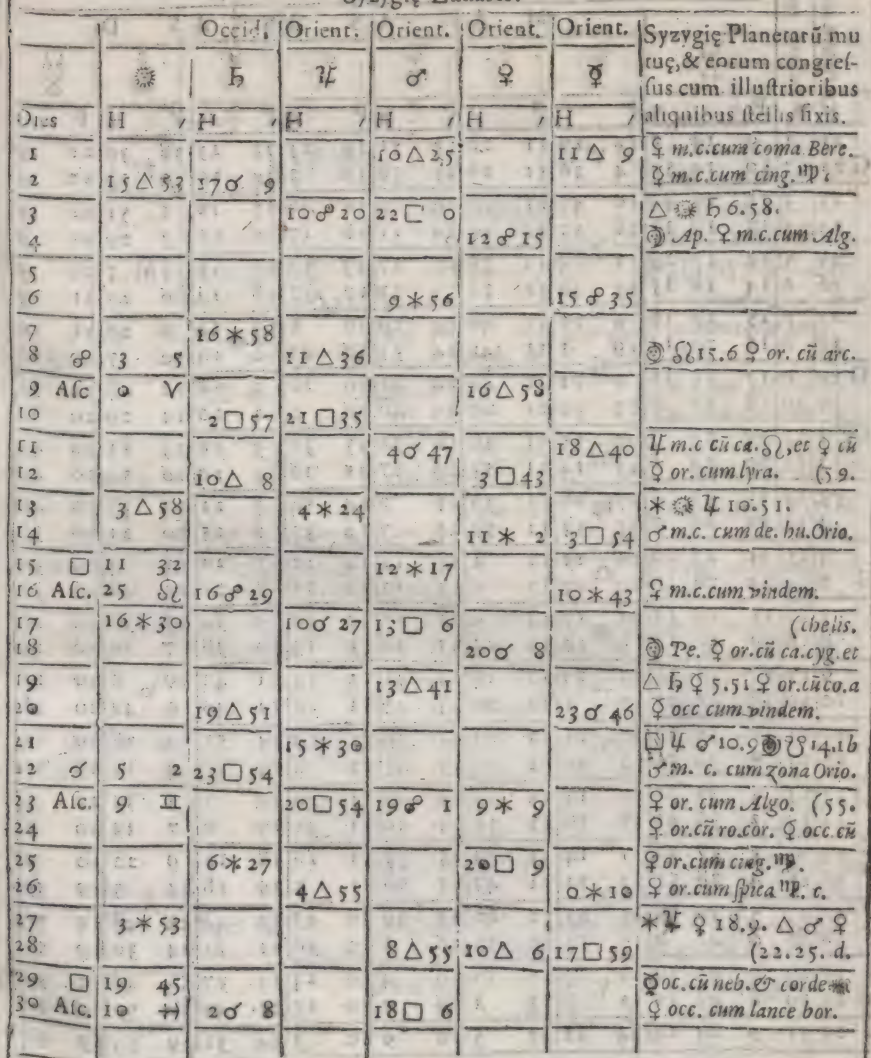 Occid. Orient. Orient. Orient. Orient. Syzygię Planetarũ mu
☉ ♄ ♃ ♂ ♀ ☿ tuę, & eorum congreſ-
ſus cum illuſtrioribus
Dies H ′ H ′ H ′ H ′ H ′ H ′ aliquibus ſtellis fixis.
1 10 △ 25 11 △ 9 ♀ m.c.cum coma Bere.
2 15 △ 53 17 ☌ 9 ☿ m.c.cum cing. ♍.
3 10 ☍ 20 22 □ 0 △ ☉ ♄ 6.58.
4 12 ☍ 15 ☽ Ap. ♀ m.c.cum Alg.
5
6 9 ✶ 56 15 ☍ 35
7 16 ✶ 58
8 ☍ 3 5 11 △ 36 ☽ ☊ 15.6 ♀ or. cũ arc.
9 Aſc 0 ♈ 16 △ 58
10 2 □ 57 21 □ 35
11 4 ☌ 47 18 △ 40 ♃ m.c cũ ca. ♌, et ♀ cũ
12 10 △ 8 3 □ 43 ☿ or. cum lyra. (59.
13 3 △ 58 4 ✶ 24 ✶ ☉ ♃ 10.51.
14 11 ✶ 2 3 □ 54 ♂ m.c. cum de. hu.Orio.
15 □ 11 32 12 ✶ 17
16 Aſc. 25 ♌ 16 ☍ 29 10 ✶ 43 ♀ m.c.cum vindem.
17 16 ✶ 30 10 ☌ 27 13 □ 6 (chelis.
18 20 ☌ 8 ☽ Pe. ☿ or.cũ ca.cyg.et
19 13 △ 41 △ ♄ ☿ 5.51 ♀ or.cũ co.a
20 19 △ 51 23 ☌ 46 ☿ occ cum vindem.
21 15 ✶ 30 □ ♃ ♂ 10.9 ☽ ☋ 14.1b
22 ☌ 5 2 23 □ 54 ♂ m. c. cum zona Orio.
23 Aſc. 9 ♊ 20 □ 54 19 ☍ 1 9 ✶ 9 ♀ or. cum Algo. (55.
24 ♀ or.cũ ro.cor. ☿ occ.cũ
25 6 ✶ 27 20 □ 9 ♀ or.cum cing. ♍.
26 4 △ 55 0 ✶ 10 ♀ or.cum ſpica ♍. c.
27 3 ✶ 53 ✶ ♃ ♀ 18.9. △ ♂ ♀
28 8 △ 55 10 △ 6 17 □ 59 (22.25. d.
29 □ 19 45 ☿ oc.cũ neb. & corde
30 Aſc. 10 ♓ 2 ☌ 8 18 □ 6 ♀ occ. cum lance bor.